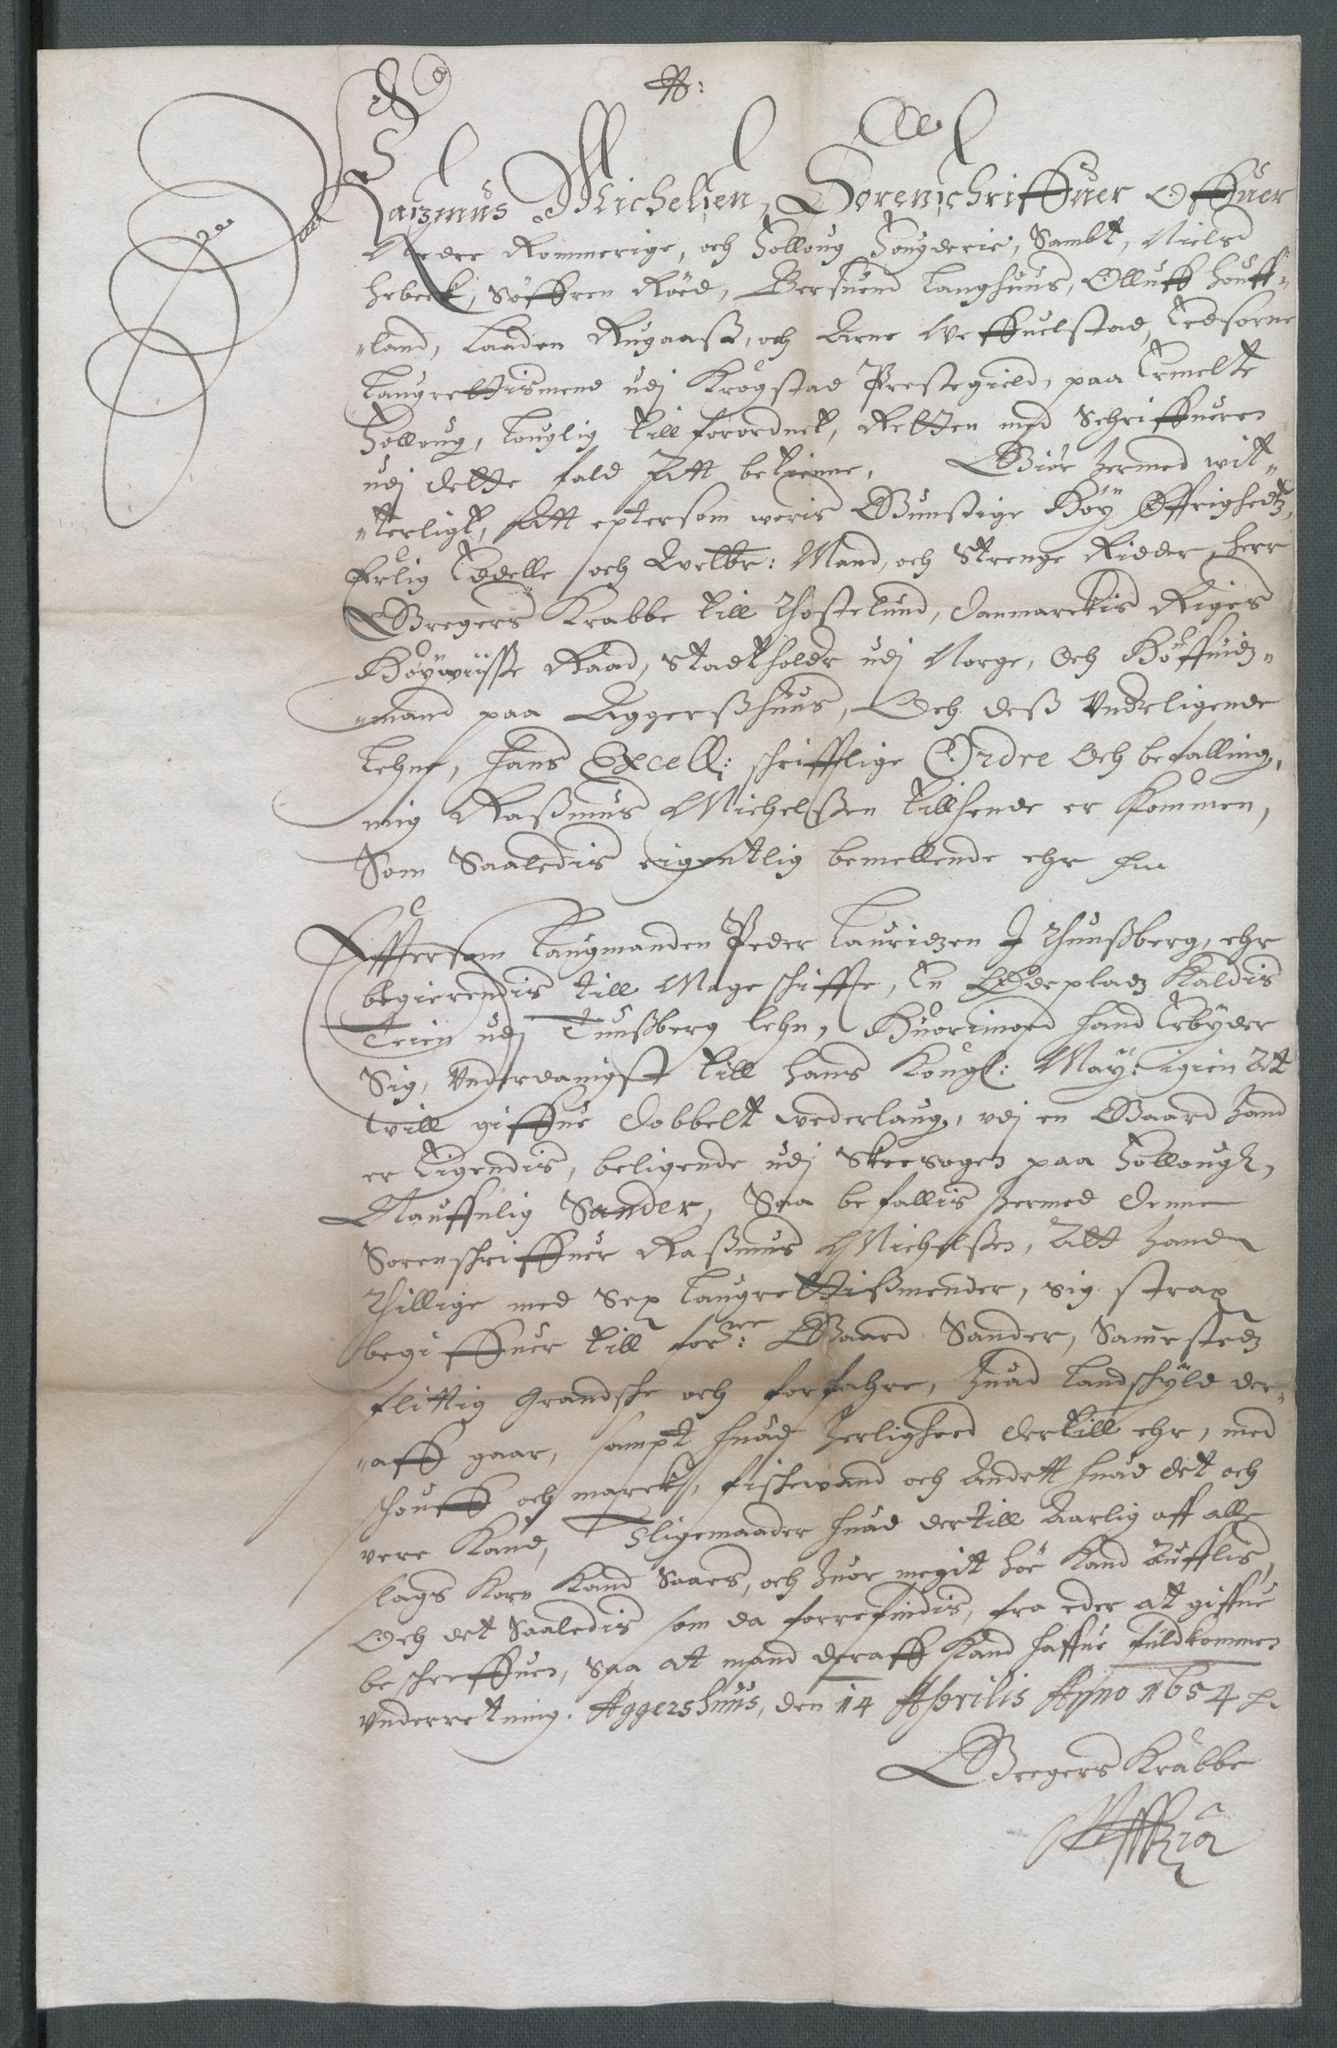 A:
Raszmus Michelsen, Sorenschriffuer Offuer
Nedre Rommerige, och Folloug Fougderie, Sambt, Niels
hebeck, Söffren Röed, Bersuend Langhuus, Olluff Houff¬
¬land, Laaden Rugaasz, och Arne Weffuelstad, Eedsorne
Laugrettismend udj Krogstad Prestegield, paa Ermelte
Folloug, louglig till forordnet, Retten med Schriffueren
udj dette fald Att betienne, Giör hermed wit¬
¬terligt, Att eptersom woris Gunstige Höy Öffrighedtz,
Erlig Eedelle och Velbr: Mand, och Strenge Ridder, herr
Gregers Krabbe till Thostelund, Danmarckis Riges
Höywiisse Raad, Stadtholdr udj Norge, Och Höffuidz¬
¬mand paa Aggerszhuus, Och desz Underligende
Lehne, Hans Excell: schrifftlige Ordre Och befalling,
mig Raszmus Michelszen tillhende er kommen,
Som Saaledis eigentlig bemellende ehr
Effter som Laugmanden Peder Lauridzen J Thunszberg, ehr
begierendis till Mageschiffte, En Ödepladz Kaldis
Teien udj Tunszberg Lehn, Huorimod hand Erbyder
Sig, Underdanigst till hans Kongl: May: igien At
will giffue dobbelt wederlaug, udj en Gaard hand
er Eigendis, beligende udj Skeesogen paa Follough,
Nauffnlig Sander, Saa befallis hermed Denne
Sorenschriffuer Raszmus Michelszen, Att hand
Thillige med Sex Laugrettiszmender, sig strax
begiffuer till forne: Gaard Sander, Samestedz
flittig Grandsche och forfahre, huad Landschyld der¬
¬aff gaar, sampt huad herlighed dertill ehr, med
schouff och march, fischevand och Andett huad det och
vere kand, Jligemaader huad dertill Aarlig aff alle
slags korn kand Saaes, och huor megit höe kand Aufflis,
Och det Saaledis som da forrefindis, fra eder at giffue
bescheffuen, saa at mand deraff kand haffue fuldkommen
Underretning. Aggershuus, den 14 Aprilis Anno 1654
Gregers Krabbe